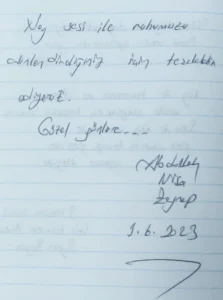 Ney sesi ile ruhumuzu
dinlendirdiğiniz için teşekkür
ediyoruz.
Güzel günlere...
Abdullah
Nisa
Zeynep
9.6.2023